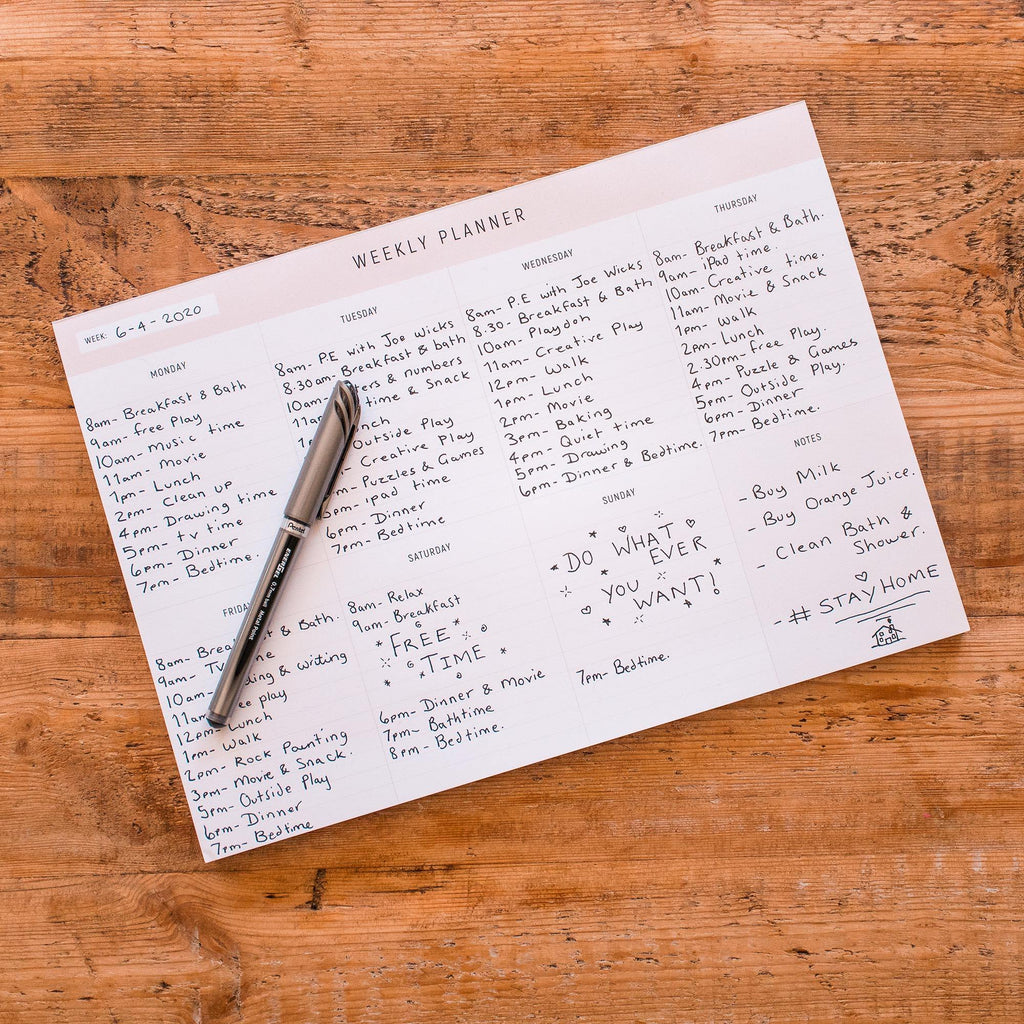 WEEKLY PLANNER
WEEK: 6-4-2020
MONDAY
8am- Breakfast & Bath
9am- free Play
10am- Music time
11am- Movie
1pm- Lunch
2pm- Clean up
4pm- Drawing time
5pm- tv time
6pm- Dinner
7pm- Bedtime.
TUESDAY
8am- P.E with Joe Wicks
8.30am- Breakfast & bath
10am- & numbers
time & Snack
Outside Play
Creative Play
Puzzles & Games
ipad time
6pm- Dinner
7pm- Bedtime
WEDNESDAY
8am- P.E with Joe Wicks
8.30- Breakfast & Bath
10am- Playdoh
11am- Creative Play
12pm- Walk
1pm- Lunch
2pm- Movie
3pm- Baking
4pm- Quiet time
5pm- Drawing
6pm- Dinner & Bedtime.
THURSDAY
8am- Breakfast & Bath.
9am- iPad time.
10am- Creative time.
11am- Movie & Snack
1pm- Walk
2pm- Lunch
2.30pm- free Play.
4pm- Puzzle & Games
5pm- Outside Play.
6pm- Dinner
7pm- Bedtime.
FRIDAY
8am- & Bath.
9am-
10am- & writing
11am play
12pm- Lunch
1pm- Walk
2pm- Rock Painting
3pm- Movie & Snack.
5pm- Outside Play
6pm- Dinner
7pm- Bedtime
SATURDAY
8am- Relax
9am- Breakfast
FREE
TIME
6pm- Dinner & Movie
7pm- Bathtime
8pm- Bedtime.
SUNDAY
DO WHAT
EVER
YOU
WANT!
7pm- Bedtime.
NOTES
- Buy Milk
- Buy Orange Juice.
- Clean Bath &
Shower.
- # STAY HOME
Pentel
ENERGEL 0.7mm ball Metal Point